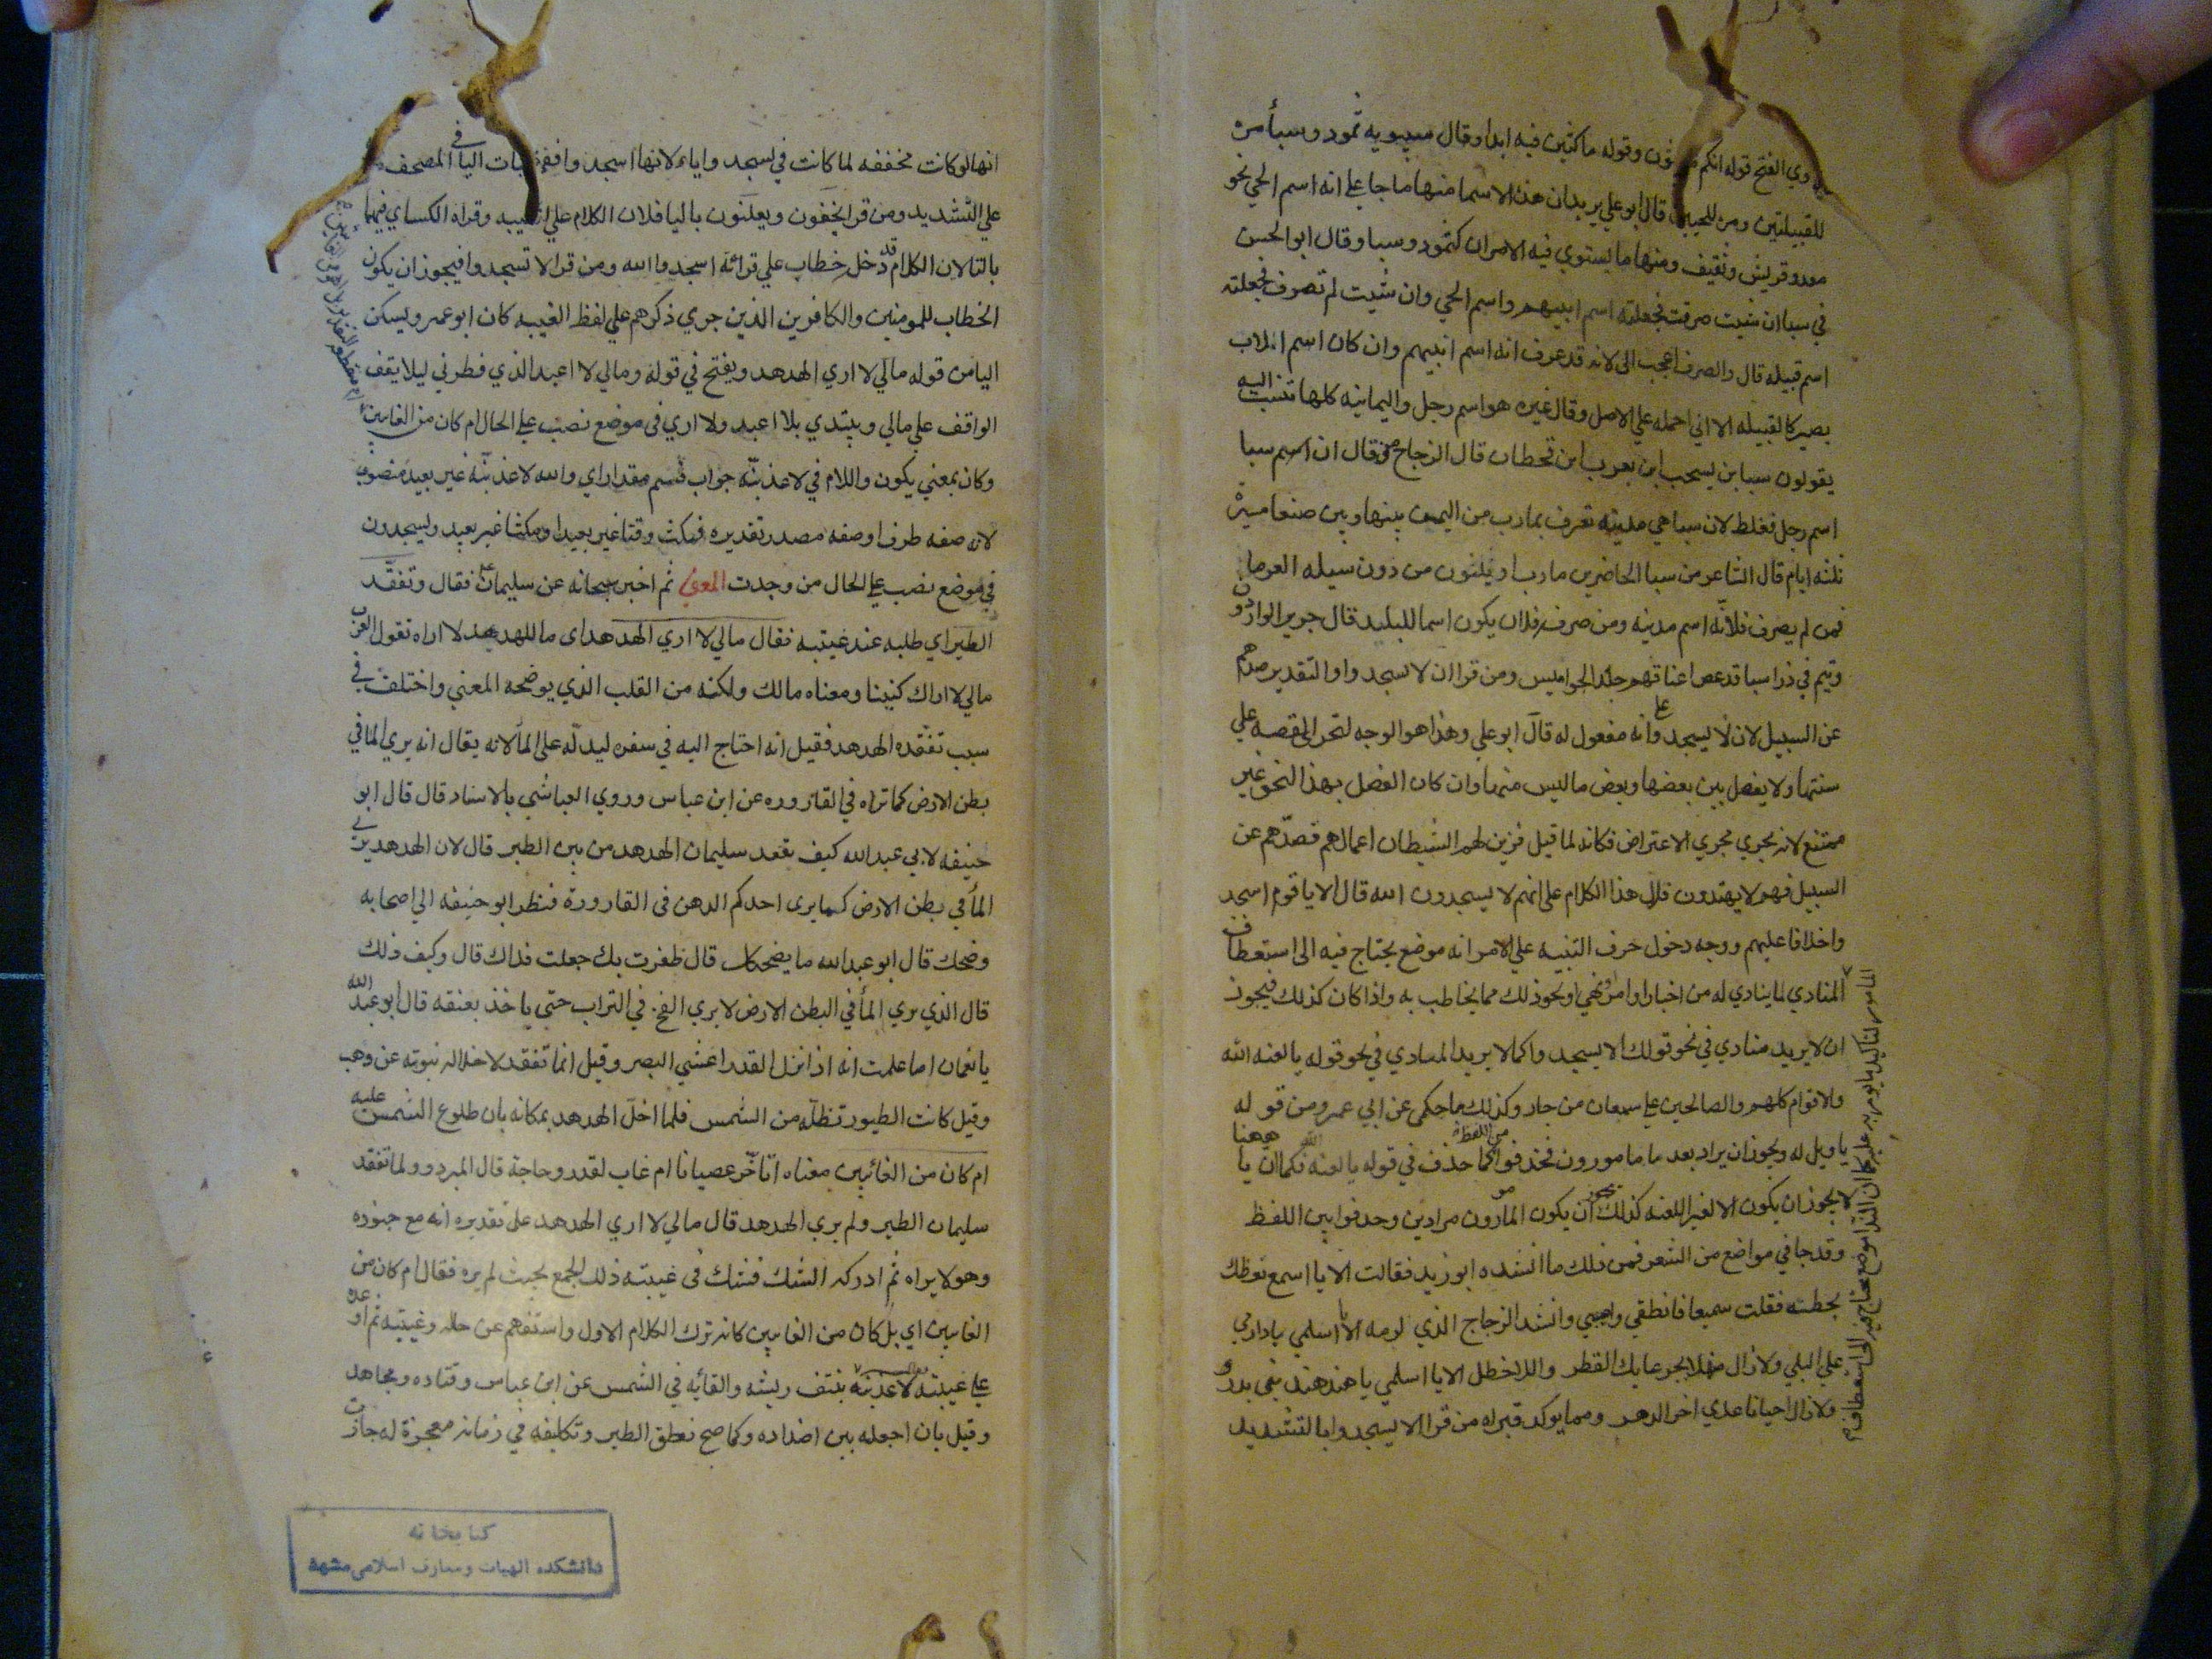 وي الفتح قوله انكم وقوله ماكثين فيه ابدا وقال سيبويه ثمود وسبأ مرة
للقبيلتين ومرة للحيين قال ابو علي يريد ان هذه الاسما منها ما جا علي انه اسم الحي نحو
معد وقريش وثقيف ومنها ما يستوي فيه الامران كثمود وسبا وقال ابو الحسن
في سبا ان شيت صرفت فجعلته اسم ابيهم واسم الحي وان شيت لم تصرف فجعلته
اسم قبيله قال والصرف اعجب الي لانه قد عرف انه اسم ابيهم وان كان اسم الاب
يصير كالقبيله الا اني احمله علي الاصل وقال غيره هو اسم رجل واليمانيه كلها تنسب اليه
يقولون سبا بن يسحب ابن يعرب ابن قحطان قال الزجاج من قال ان اسم سبا
اسم رجل فغلط لان سبا هي مدينه تعرف بمارب من اليمن بينها وبين صنعا مسيرة
ثلثه ايام قال الشاعر من سبا الحاضرين مارب اذ يبنون من دون سيله العرما
فمن لم يصرف فلانّه اسم مدينه ومن صرف فلان يكون اسما للبلد قال جرير الواردون
وتيم في ذرا سبا قد عض اعناقهم جلد الجواميس ومن قرا ان لا يسجدوا والتقدير صدهم
عن السبيل لان لا يسجدوا علي انه مفعول له قال ابو علي وهذا هو الوجه لتجري القصه علي
سنتها ولا يفصل بين بعضها وبعض ما ليس منها وان كان الفصل بهذا النحو غير
ممتنع لانه يجري مجري الاعتراض فكانه لما قيل فزين لهم الشيطان اعمالهم فصدّهم عن
السبيل فهم لا يهتدون قال هذا الكلام علي انهم لا يسجدون الله قال الا يا قوم اسجد
واخلافا عليهم ووجه دخول حرف التنبيه علي الامر انه موضع يحتاج فيه الي استعطاف
المنادي لما ينادي له من اخبار او امر ونهي او نحو ذلك مما يخاطب به واذا كان كذلك فيجوز
ان لا يريد منادي في نحو قولك الا يسجدوا كما لا يريد المنادي في نحو قوله يا لعنه الله
والاقوام كلهم والصالحين علي سمعان من جار وكذلك ما حكي عن ابي عمرو من قوله
يا ويل له ويجوز ان يراد بعد ما مامورون فحذفوا من اللفظ كما حذف في قوله يا لعنه الله فكما ان يا ههنا
لا يجوز ان يكون الا لغير اللعنه كذلك يجوز ان يكون المامورون مرادين وحذفوا من اللفظ
وقد جا في مواضع من الشعر فمن ذلك ما انشده ابو زيد فقالت الا يا اسمع نعظك
بخطبه فقلت سميعا فانطقي واصيبي وانشد الزجاج الذي لرمه الا يا اسلمي يا دار مي
علي البلي ولا زال منهلا بجرعايك القطر وللاخطل الا يا اسلمي يا هند هند بني بدر
ولا زال احيانا عدي اخر الدهر ومما يوكد قراه من قرا الا يسجدوا بالتشديد
انها لو كانت مخففه لما كانت في يسجدوا ياء لانها اسجدوا ففي ثبات اليا في المصحف
علي التشديد ومن قرا يخفون ويعلنون باليا فلان الكلام علي الغيبه وقراه الكساي فيهما
بالتا لان الكلام قد دخل خطاب علي قرائه اسجدوا الله ومن قرا الا تسجدوا فيجوز ان يكون
الخطاب للمومنين والكافرين الذين جري ذكرهم علي لفظ الغيبه كان ابو عمرو يسكن
اليا من قوله مالي لا اري الهدهد ويفتح في قوله ومالي لا اعبد الذي فطرني ليلا يقف
الواقف علي مالي ويبتدي بلا اعبد ولا اري في موضع نصب علي الحال ام كان من الغايبين
وكان بمعني يكون واللام في لاعذبنّه جواب قسم مقدر اي والله لاعذبنّه غير بعيد منصوب
لانه صفه ظرف او صفه مصدر تقديره فمكث وقتا غير بعيد او مكثا غير بعيد ويسجدون
في موضع نصب علي الحال من وجدت المعني ثم اخبر سبحانه عن سليمان ع فقال وتفقّد
الطير اي طلبه عند غيبته فقال مالي لا اري الهدهد اي ما للهدهد لا اراه تقول العرب
مالي لا اراك كئيبا ومعناه مالك ولكنه من القلب الذي يوضحه المعني واختلف في
سبب تفقده الهدهد فقيل انه احتاج اليه في سفره ليدلّه علي الما لانه يقال انه يري الما في
بطن الارض كما تراه في القاروره عن ابن عباس وروي العياشي بالاسناد قال قال ابو
حنيفه لابي عبد الله كيف تفقد سليمان الهدهد من بين الطير قال لان الهدهد يري
المأ في بطن الارض كما يري احدكم الدهن في القارورة فنظر ابو حنيفه الي اصحابه
وضحك قال ابو عبد الله ما يضحكك قال ظفرت بك جعلت فداك قال وكيف ذلك
قال الذي يري المأ في البطن الارض لا يري الفخ في التراب حتي ياخذ بعنقه قال ابو عبد الله
يا نعمان اما علمت انه اذا نزل القدر اغشي البصر وقيل انما تفقد لاخلاله نبوته عن وهب
وقيل كانت الطيور تظلّه من الشمس فلما اخلّ الهدهد بمكانه بان طلوع الشمس عليه
ام كان من الغائبين معناه اتاخّر عصيانا ام غاب لعذر وحاجة قال المبرد ولما تفقد
سليمان الطير ولم يري الهدهد قال مالي لا اري الهدهد علي تقديره انه مع جنوده
وهو لا يراه ثم ادركه الشك فشك في غيبته ذلك الجمع بحيث لم يره فقال ام كان من
الغايبين اي بل كان من الغايبين كانه ترك الكلام الاول واستفهم عن حاله وغيبته ثم اوعده
علي غيبته لاعذبنّه بنتف ريشه والقائه في الشمس عن ابن عباس وقتاده ومجاهد
وقيل بان اجعله بين اضداده وكما صح نطق الطير وتكليفه في زمانه معجزة له جازت
كتابخانه
دانشكده الهيات ومعارف اسلامى مشهد